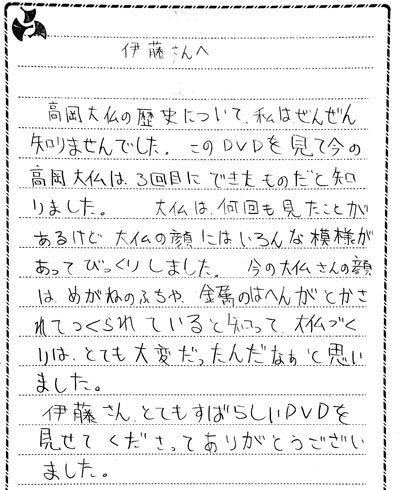 伊藤さんへ
高岡大仏の歴史について、私はぜんぜん
知りませんでした。このDVDを見て今の
高岡大仏は、3回目にできたものだと知
りました。 大仏は、何回も見たことが
あるけど、大仏の顔にはいろんな模様が
あってびっくりしました。 今の大仏さんの顔
は、めがねのふちや、金属のはへんがとかさ
れてつくられていると知って、大仏づく
りは、とても大変だったんだなぁと思い
ました。
伊藤さん、とてもすばらしいDVDを
見せてくださってありがとうござい
ました。